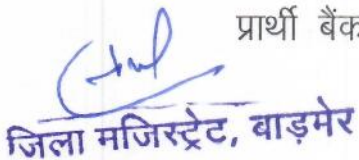 प्रार्थी बैंक
जिला मजिस्ट्रेट, बाड़मेर